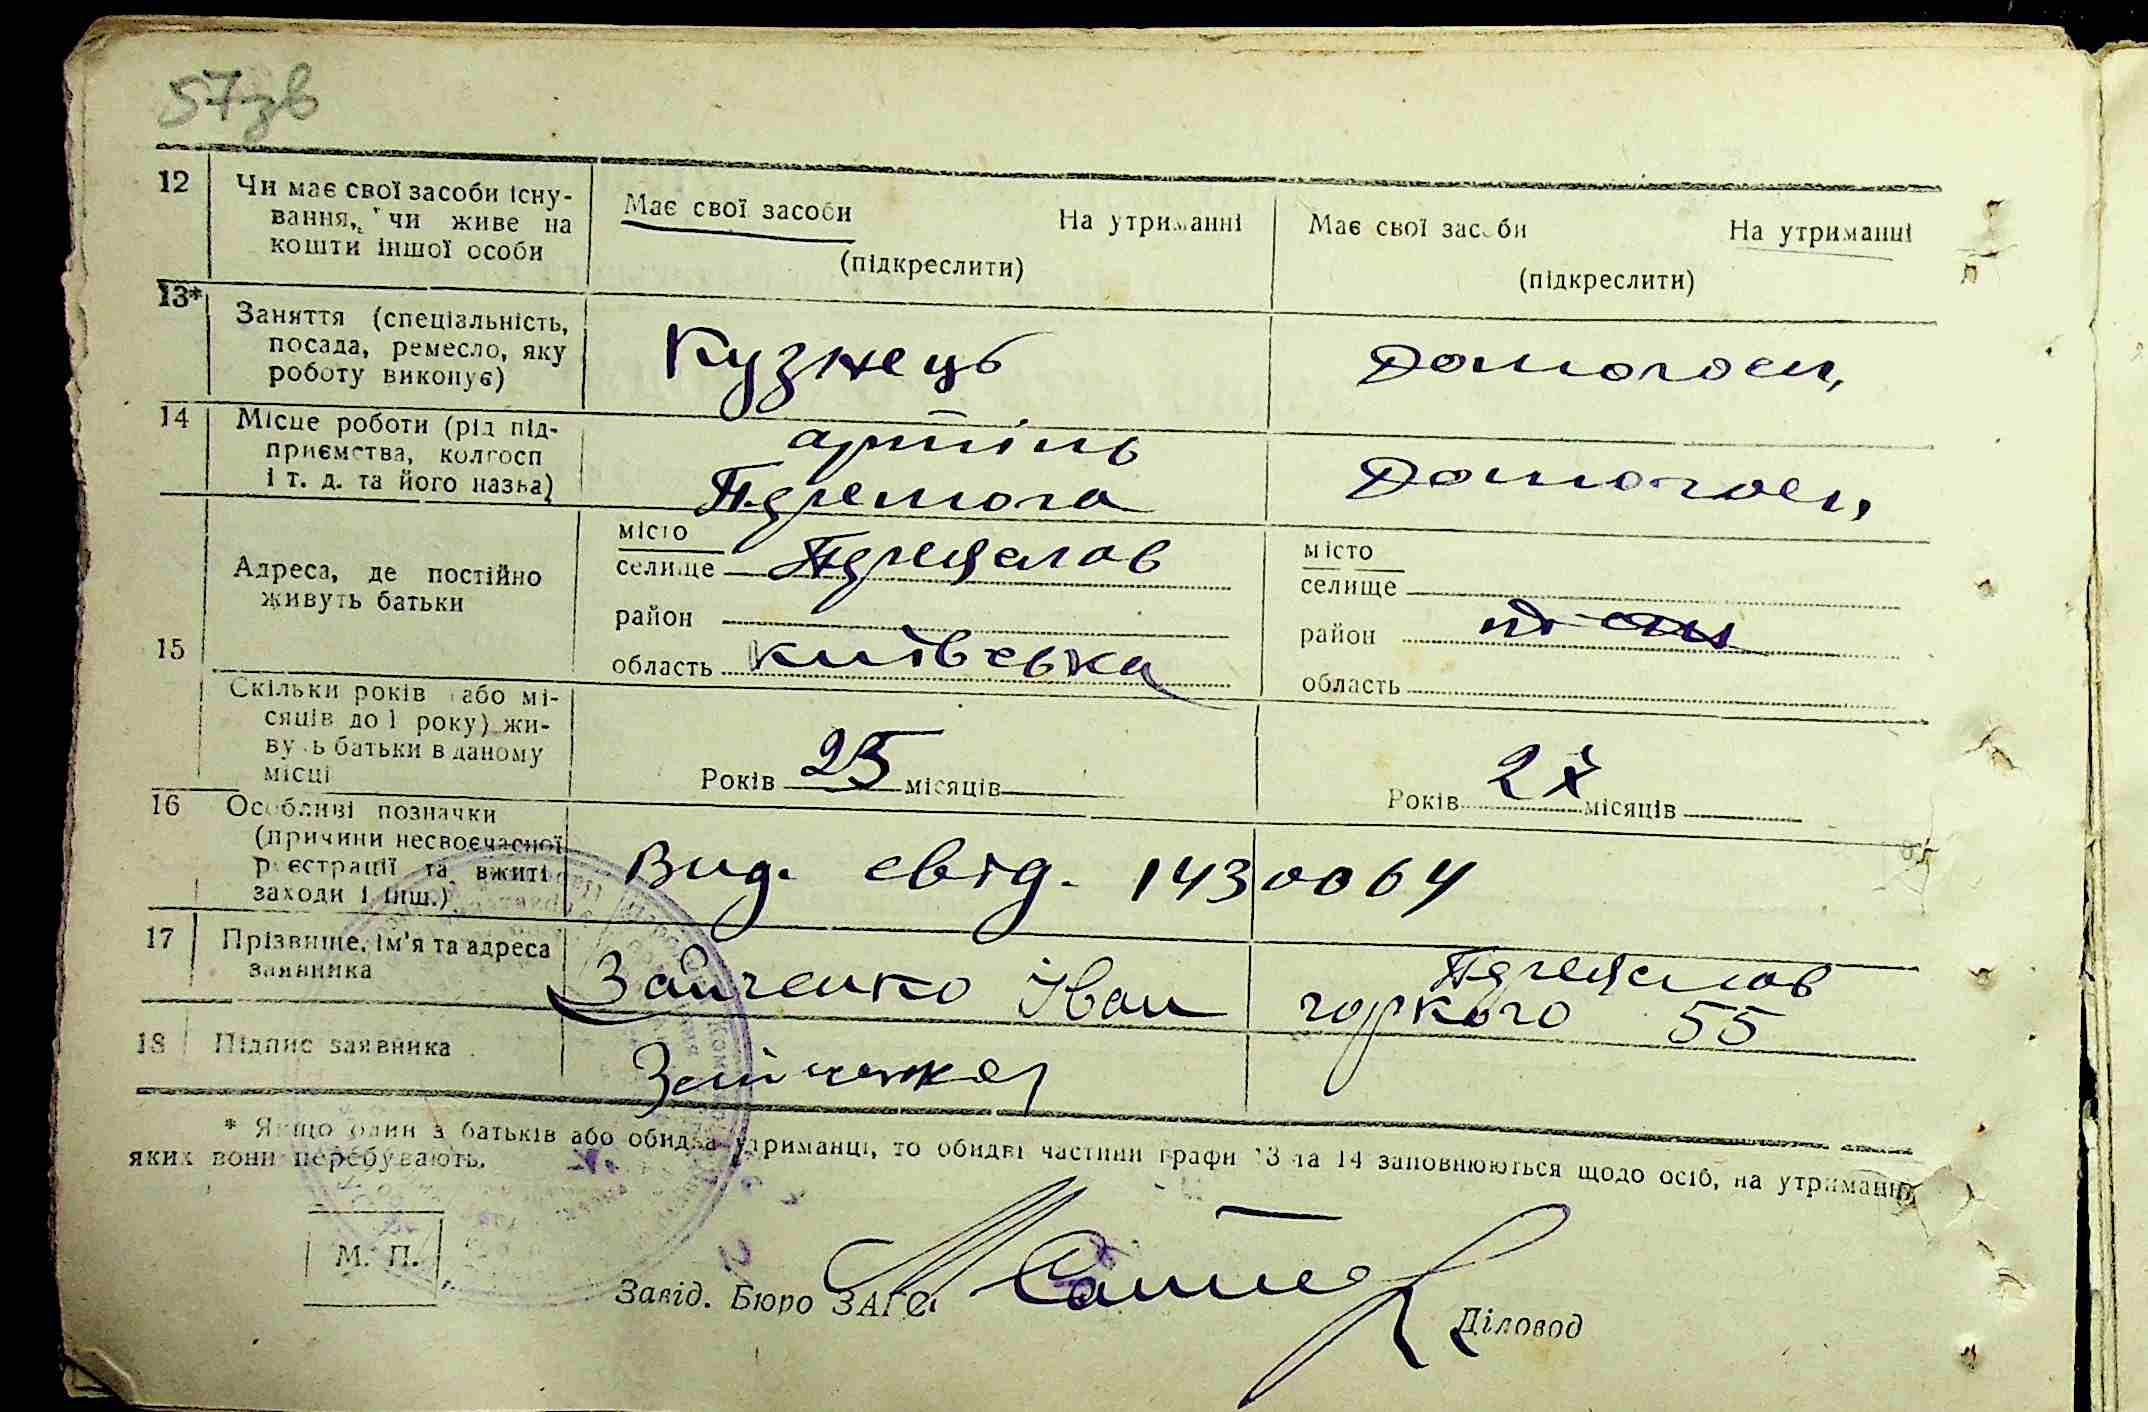 57зв
12 Чи має свої засоби існу-
вання, чи живе на
кошти іншої особи
Має свої засоби На утриманні
(підкреслити)
Має свої засоби На утриманні
(підкреслити)
13* Заняття (спеціальність,
посада, ремесло, яку
роботу виконує)
Кузнець
Домогосп,
14 Місце роботи (рід під-
приємства, колгосп
і т. д. та його назва)
артіль
Перемога
Домогосп,
15 Адреса, де постійно
живуть батьки
місто
селище Переяслав
район
область Київська
місто
селище
район
область
Скільки років (або мі-
сяців до 1 року) жи-
вуть батьки в даному
місці
Років 25 місяців
Років місяців
16 Особливі позначки
(причини несвоєчасної
реєстрації та вжиті
заходи і інш.)
Вид. свід. 1430064
17 Прізвище, ім'я та адреса
заявника
Зайченко Іван
Переяслав
горкого 55
18 Підпис заявника
Зайченко
* Якщо один з батьків або обидва утриманці, то обидві частини графи 13 та 14 заповнюються щодо осіб, на утриманні
яких вони перебувають.
М. П.
Завід. Бюро ЗАГС
Діловод